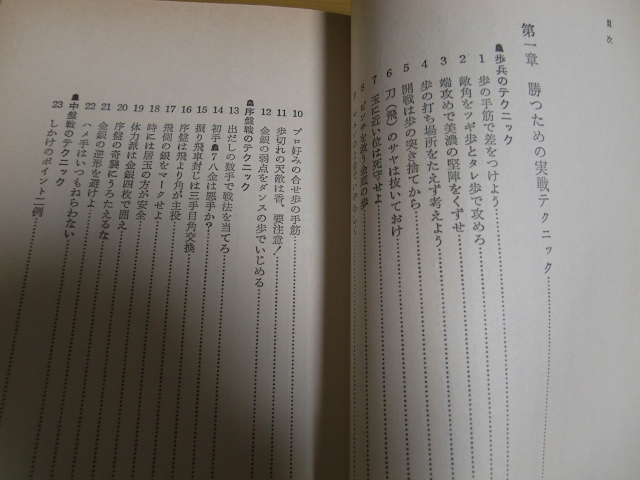 目次
第一章 勝つための実戦テクニック
☗歩兵のテクニック
1 歩の手筋で差をつけよう
2 敵角をツギ歩とタレ歩で攻めろ
3 端攻めで美濃の堅陣をくずせ
4 歩の打ち場所をたえず考えよう
5 開戦は歩の突き捨てから
6 刀(飛)のサヤは抜いておけ
7 玉に近い位は死守せよ
8 ピンチを救う金銀の歩
10 プロ好みの合せ歩の手筋
11 歩切れの天敵は香、要注意!
12 金銀の弱点をダンスの歩でいじめる
☗序盤戦のテクニック
13 出だしの数手で戦法を当てろ
14 初手☗7八金は悪手か?
15 振り飛車封じは三手目角交換
16 序盤は飛より角が主役
17 飛側の銀をマークせよ
18 時には居玉の方が安全
19 体力派は金銀四枚で囲え
20 序盤の奇襲にうろたえるな
21 金銀の逆形を避けよ
22 ハメ手はいつもねらわない
☗中盤戦のテクニック
23 しかけのポイント二例